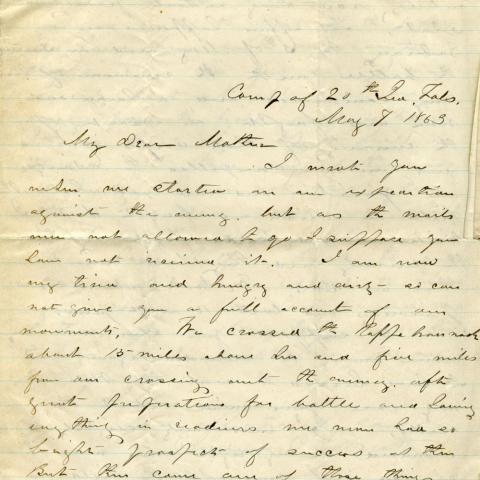 Camp of 20th Ind. Vols.
May 7 1863
My Dear Mother
I wrote you
when we started on our expedition
against the enemy. but as the mails
were not allowed to go I suppose you
have not received it. I am now
very tired and hungry and dirty - so can
not give you a full account of our
movements. We crossed the Rappahannock
about 15 miles above here and five miles
from our crossing met the enemy. after
great preparations for battle and having
everything in readiness we never had so
bright prospect of success as then
But then came one of those things